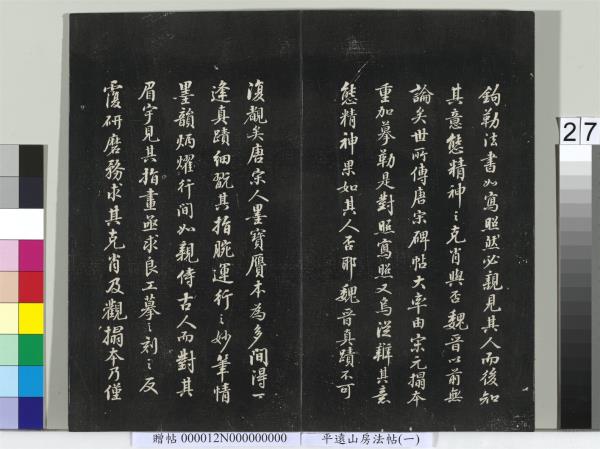 鉤勒法書如寫照然必親見其人而後知
其意態精神之克肖與否魏晉以前無
論矣世所傳唐宋碑帖大率由宋元搨本
重加摹勒是對照寫照又烏從辯其意
態精神果如其人否耶魏晉真蹟不可
復覯矣唐宋人墨寶贗本為多間得一
逢真蹟細翫其指腕運行之妙筆情
墨韻炳燿行間如親侍古人而對其
眉宇見其指畫亟求良工摹之刻之反
覆研磨務求其克肖及觀搨本乃僅
27
贈帖 000012N000000000 平遠山房法帖(一)